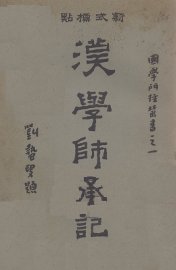 點標式新
國學門徑叢書之一
漢學師承記
劉